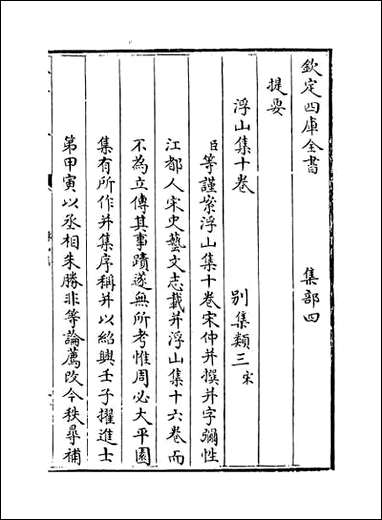 欽定四庫全書　集部四
提要
浮山集十卷　別集類三宋
臣等謹案浮山集十卷宋仲并撰并字彌性
江都人宋史藝文志載并浮山集十六卷而
不為立傳其事蹟遂無所考惟周必大平園
集有所作并集序稱并以紹興壬子擢進士
第甲寅以丞相朱勝非等論薦改今秩尋補